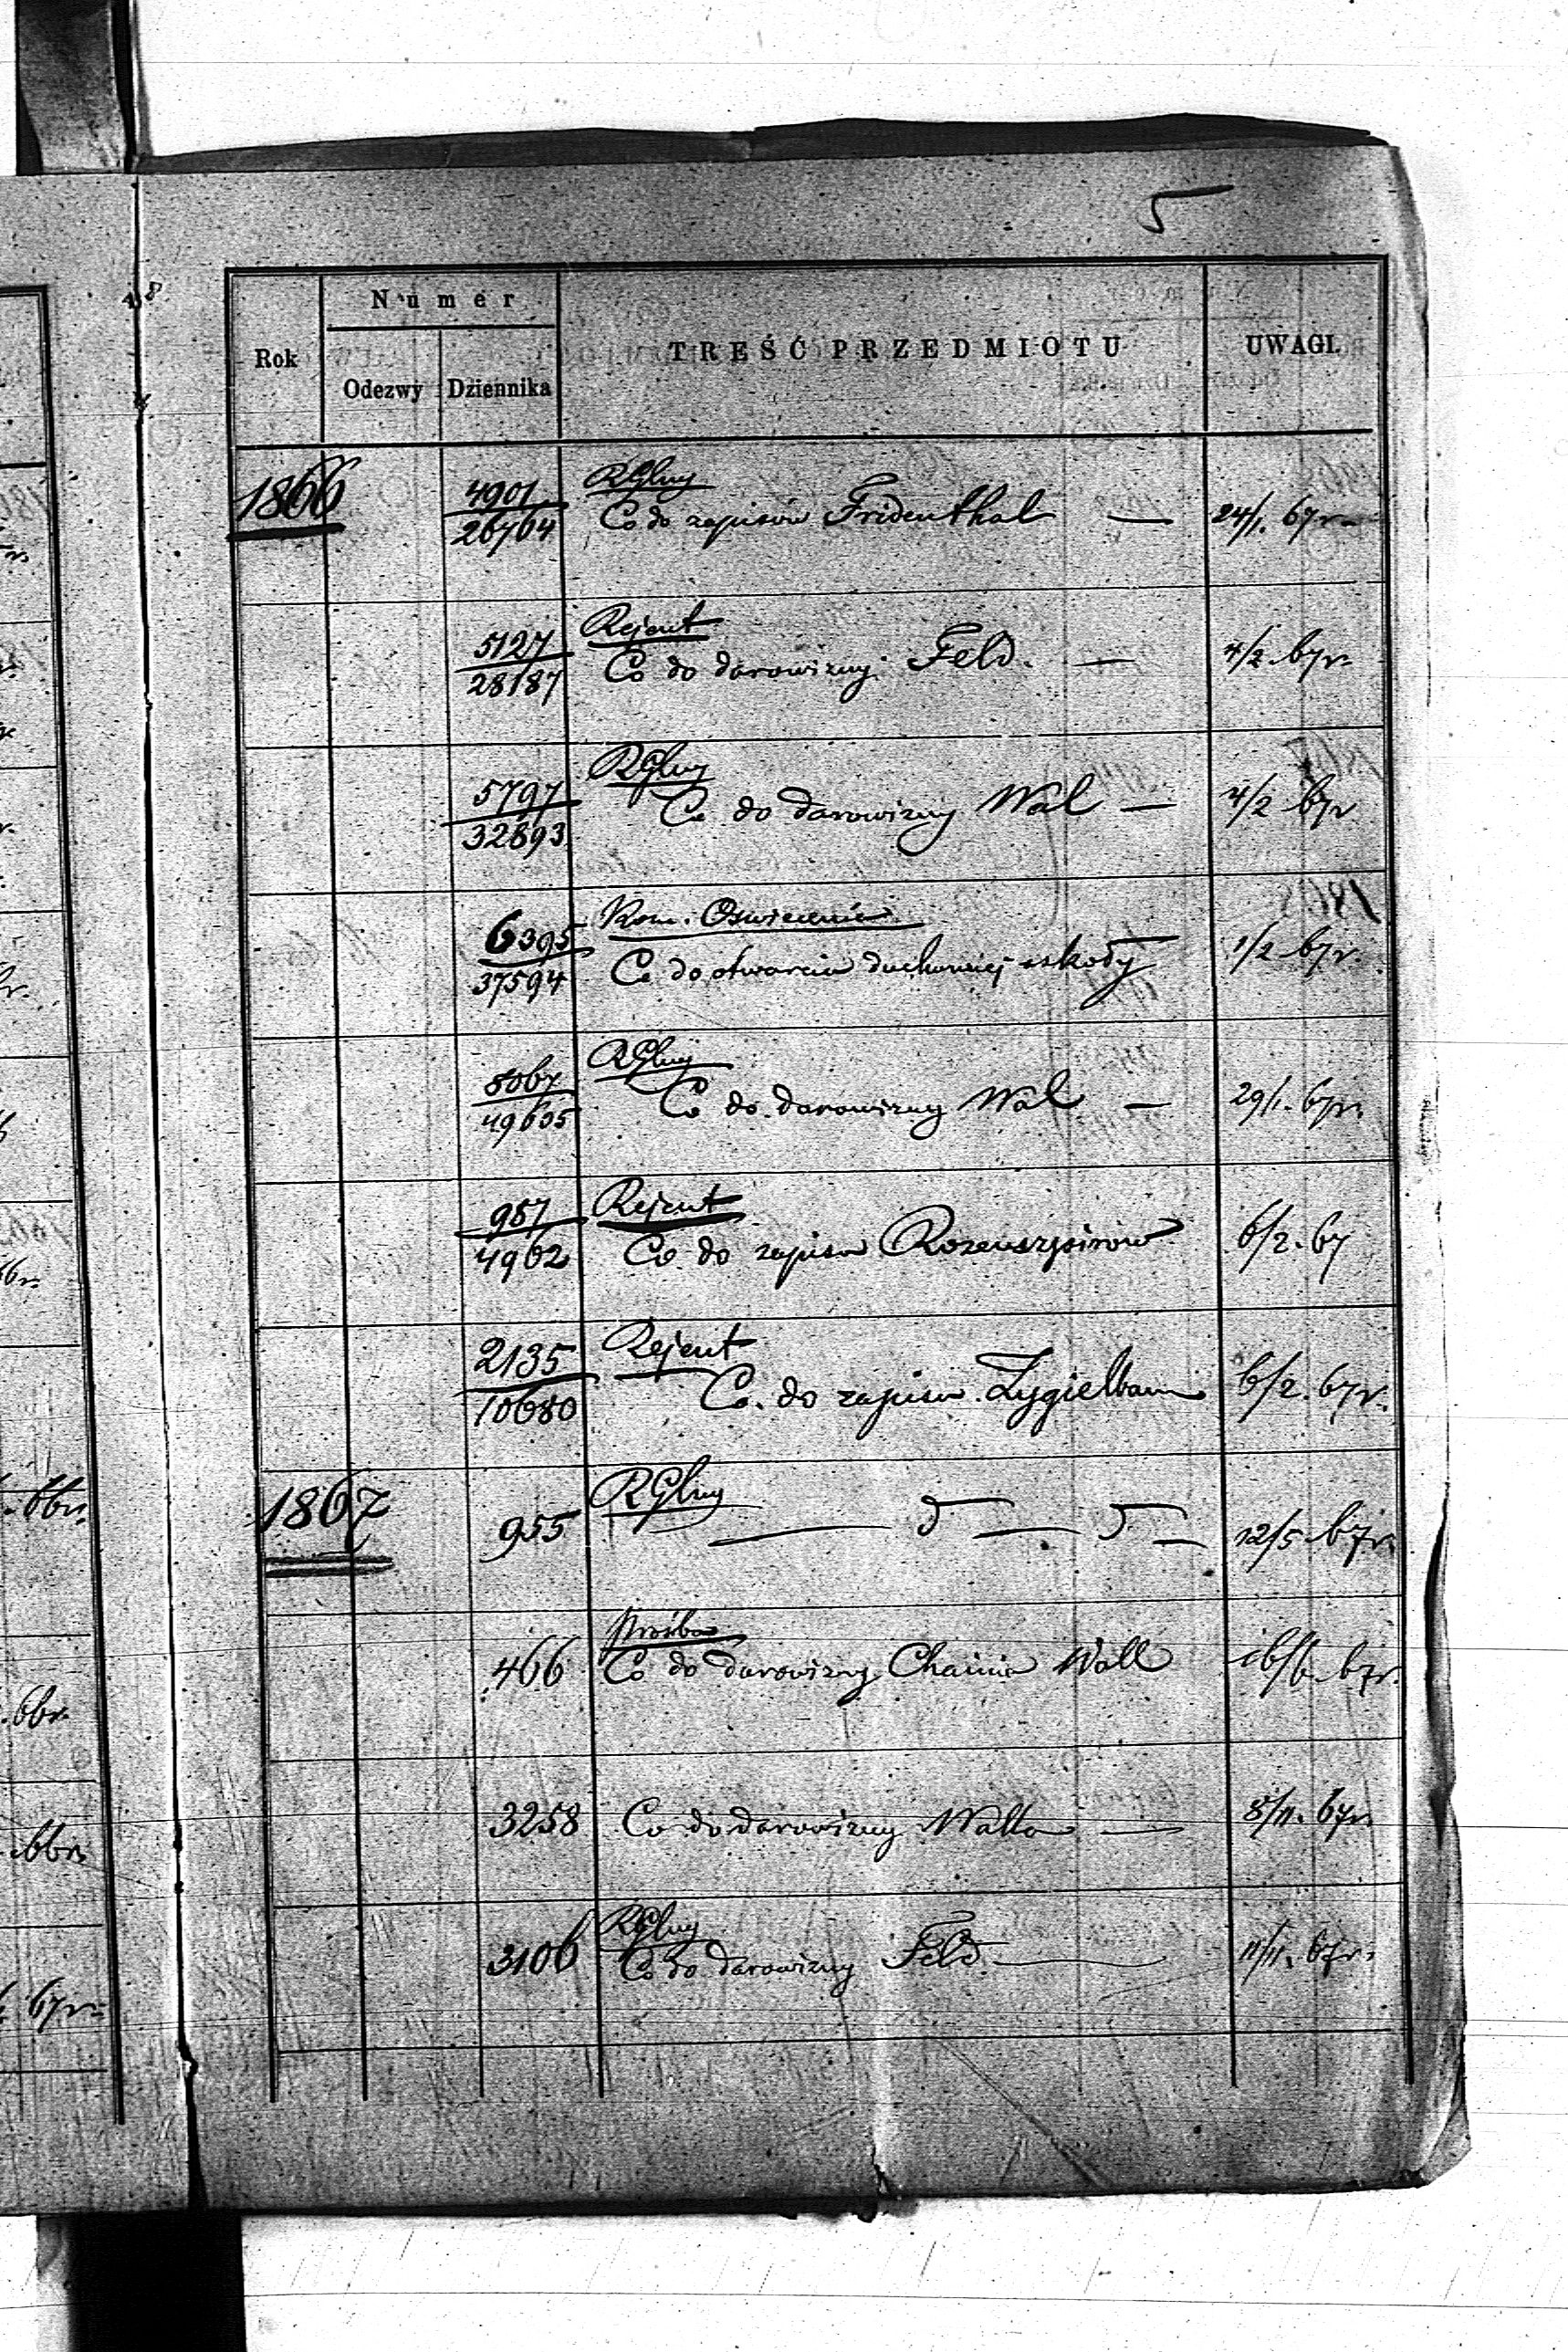 5
Numer
Rok
Odezwy
Dziennika
TREŚĆ PRZEDMIOTU
UWAGI.
1866
4901
26764
RGlny
Co do zapisów Fridenthal —
24/1. 67 r.
5127
28187
Rejent
Co do darowizny Feld. —
4/2. 67r.
5797
32893
RGlny
Co do darowizny Wal —
4/2 67r
6395
37594
Kom. Oswiecenia
Co do otwarcia duchownej szkoły
1/2 67r.
8067
49635
RGlny
Co do darowizny Wal —
29/1. 67r.
957
4962
Rejent
Co do zapisu Rozenszpirów
6/2. 67
2135
10680
Rejent
Co do zapisu Zygielbaum
6/2. 67r.
1867
955
RGlny
— d — d —
12/5 67r.
466
Prośba
Co do darowizny Chaima Wall
16/6 67r.
3258
Co do darowizny Walla —
8/11. 67r.
3106
RGlny
Co do darowizny Feld. —
11/11. 67r.